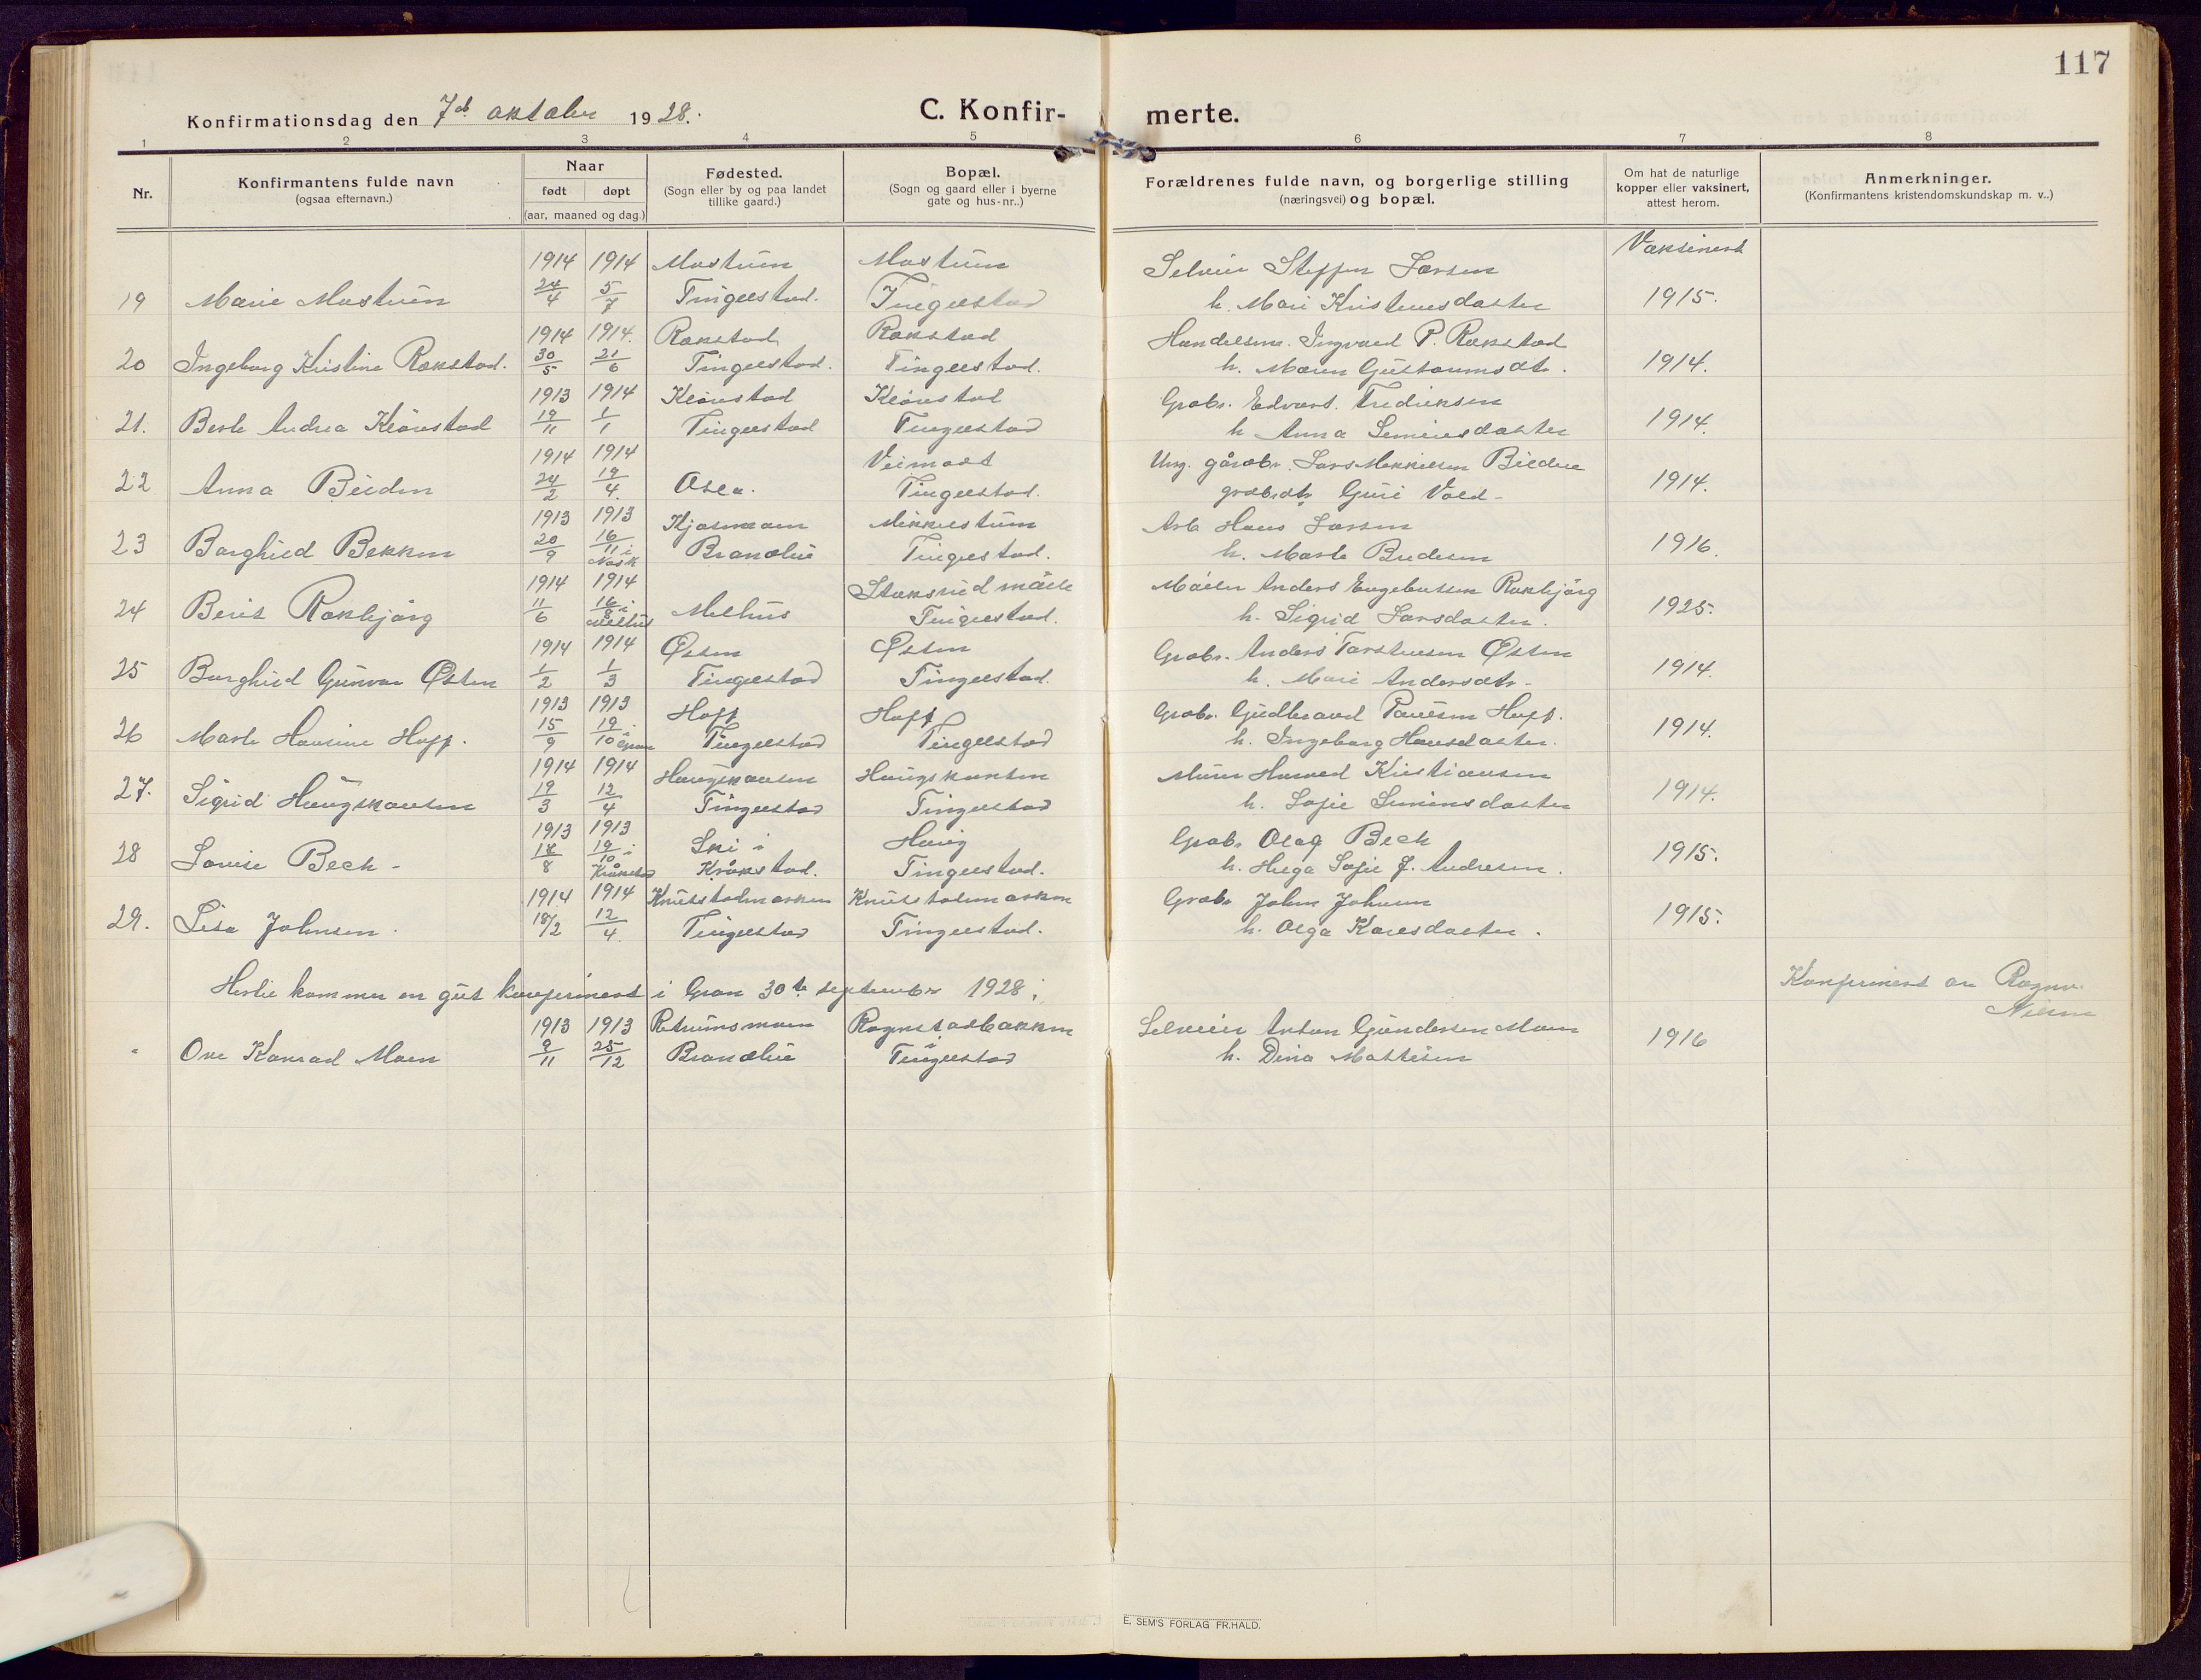 117
Konfirmationsdag den 7de oktober 1928.
C. Konfir- merte.
1 2 3 4 5 6 7 8
Nr.
Konfirmantens fulde navn
(ogsaa efternavn.)
Naar
født døpt
(aar, maaned og dag.)
Fødested.
(Sogn eller by og paa landet
tillike gaard.)
Bopæl.
(Sogn og gaard eller i byerne
gate og hus-nr..)
Forældrenes fulde navn, og borgerlige stilling
(næringsvei) og bopæl.
Om hat de naturlige
kopper eller vaksinert,
attest herom.
Anmerkninger.
(Konfirmantens kristendomskundskap m. v..)
1914 1914 Mostuen Mostuen Selveier Steffen Larsen Vaksinert
19 Marie Mostuen 24/4 5/7 Tingelstad. Tingelstad h. Mari Kristensdatter 1915.
1914 1914. Rækstad Rækstad Handelsm. Ingvald P. Rækstad
20 Ingeborg Kristine Rækstad. 30/5 21/6 Tingelstad. Tingelstad. h. Maren Gustavmsdtr. 1914.
1913 1914 Kleivstad Kleivstad Grabr. Edvart Fredriksen
21. Berte Andrea Kleivstad 19/11 1/1 Tingelstad Tingelstad h Anna Simensdatter 1914.
1914 1914 Veimodt Ung. gårdbr. Lars Mikkelsen Bilden
22 Anna Bilden 24/2 19/4. Oslo. Tingelstad. grdbrdtr Guri Vold- 1914.
1913 1913 Mikkelstuen Arb Hans Larsen
23 Borghild Bekken 20/9 16/11 i Brandbu Tingelstad. h. Marte 1916.
1914 1914 Anders Engebretsen
24 Berit 11/6 16/8 i Melhus Melhus Tingelstad. h. Sigrid Larsdatter. 1925.
1914 1914 Østen Østen Grabr. Anders Torstensen Østen
25 Borghild Gunvor Østen 1/2 1/3 Tingelstad Tingelstad. h. Mari Andersdtr- 1914.
1913 1913 Hoff Hoff Grabr. Gudbrand Paulsen Hoff.
26 Marte Hansine Hoff. 15/9 19/10 i Gran Tingelstad Tingelstad h. Ingeborg Hansdatter. 1914.
1914 1914 Haugskansen Haugskansen Harald Kristiansen
27. Sigrid Haugskansen 19/3 12/4 Tingelstad Tingelstad h. Sofie Simensdatter 1914.
1913 1913 Ski i Haug Grabr Olaf Bech
28 Lovise Bech - 8 19/10 i Kråkstad Kråkstad. Tingelstad. h. Helga Sofie J. Andresen. 1915.
1914 1914 Grabr John Johnsen
29. Lisa Johnsen. 18/2 12/4. Tingelstad Tingelstad. h. Olga Karlsdatter. 1915.
Hertil kommer en gut konfirmert i Gran 30te september 1928: Konfirmert av Ragnv.
Nilsen
1913 1913 Selveier Anton Gundersen Moen
" Ove Konrad Moen 9/11 25/12 Brandbu Tingelstad h. Dina Mathisen 1916
E. SEM'S FORLAG FR.HALD.